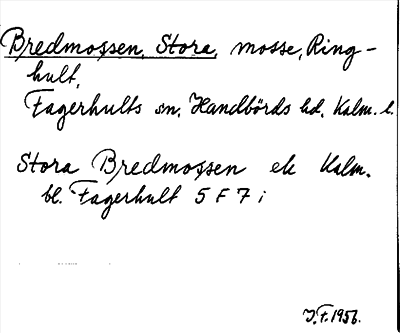 Bredmossen, Stora, mosse, Ring-
hult,
Fagerhults sn, Handbörds hd, Kalm. l.
Stora Bredmossen ek Kalm.
bl. Fagerhult 5 F 7 i
J.F. 1956.